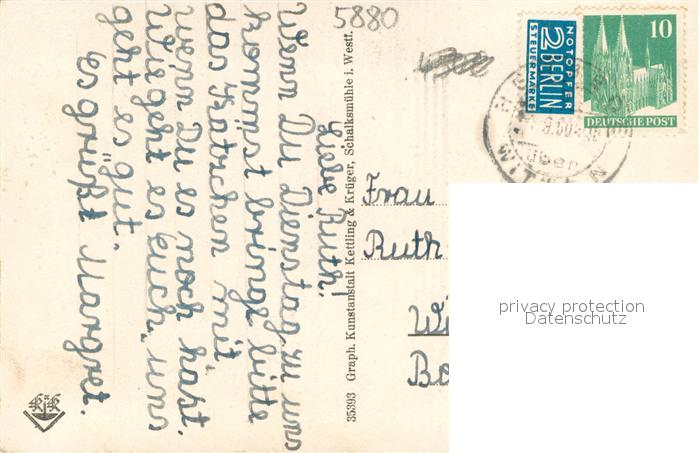 5880
Liebe Ruth!
Wenn Du Dienstag zu uns
kommst bringe bitte
das Kätchen mit,
wenn Du es noch hast.
Wie geht es Euch, uns
geht es gut.
Es grüßt Margret.
35393 Graph. Kunstanstalt Kettling & Krüger, Schalksmühle i. Westf.
NOTOPFER
2 BERLIN
STEUERMARKE
10
DEUTSCHE POST
Frau
Ruth
Wi
Bo
privacy protection
Datenschutz
K&K